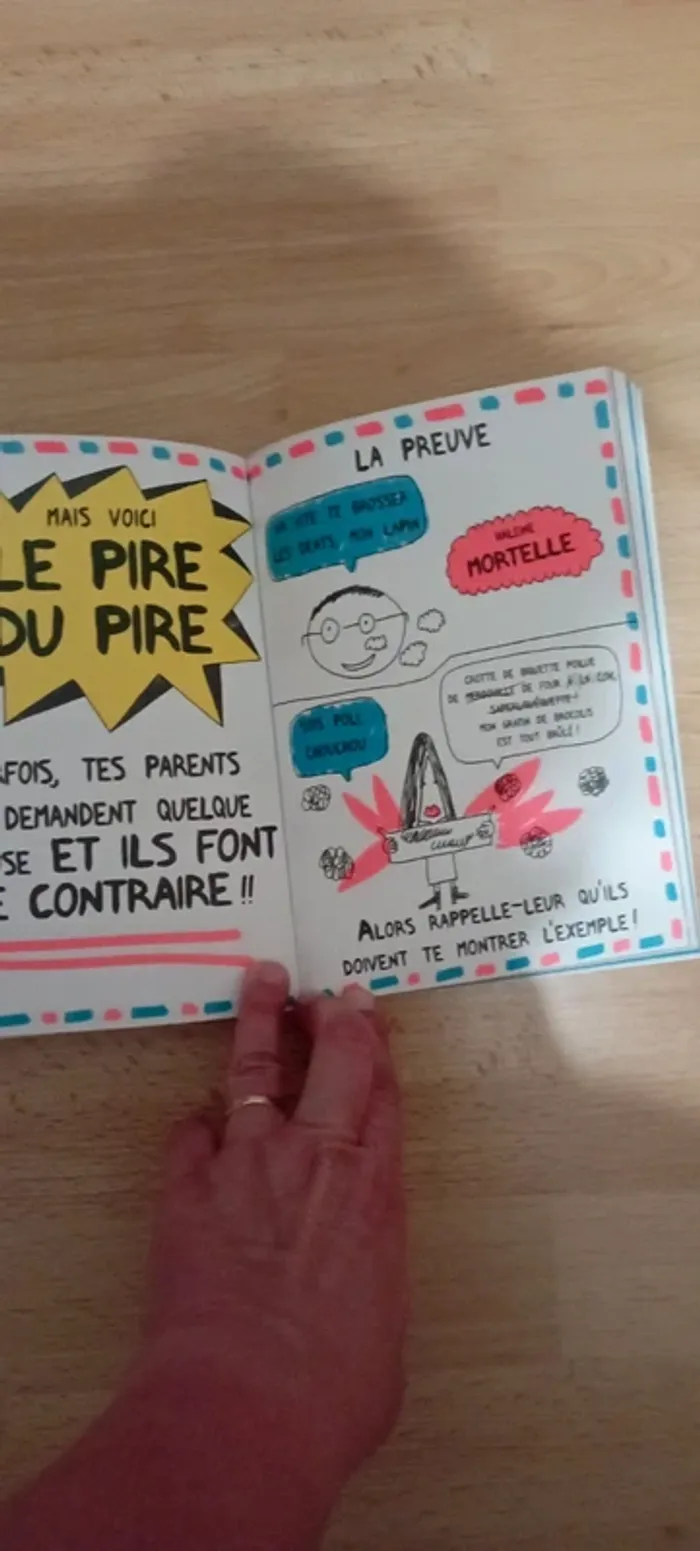 MAIS VOICI
LE PIRE
DU PIRE
FOIS, TES PARENTS
DEMANDENT QUELQUE
SE ET ILS FONT
CONTRAIRE !!
LA PREUVE
VA VITE TE BROSSER
LES DENTS, MON LAPIN!
HALEINE
MORTELLE
SOIS POLI,
CHOUCHOU
CROTTE DE BIQUETTE MOLLE
DE DE FOUR À LA CON,
MON GRATIN DE BROCOLIS
EST TOUT BRÛLÉ!
ALORS RAPPELLE-LEUR QU'ILS
DOIVENT TE MONTRER L'EXEMPLE!